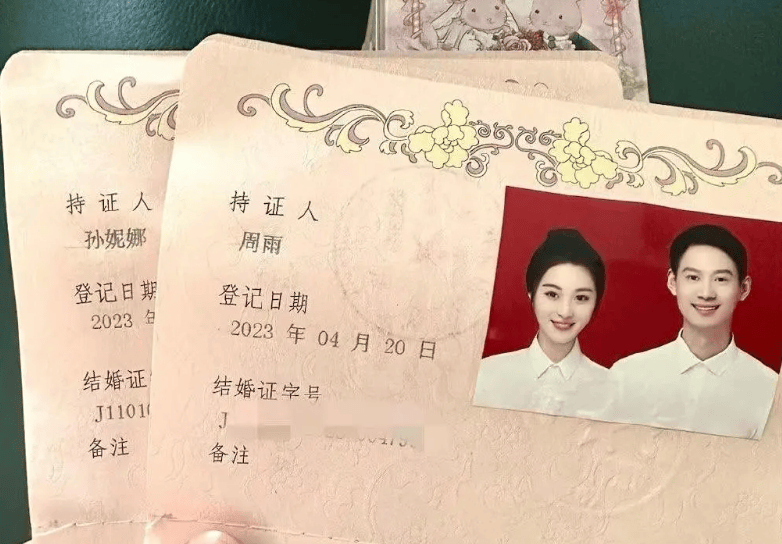 持证人
孙妮娜
登记日期
2023
结婚证
J1101
备注
持证人
周雨
登记日期
2023 年 04 月 20 日
结婚证字号
J
备注